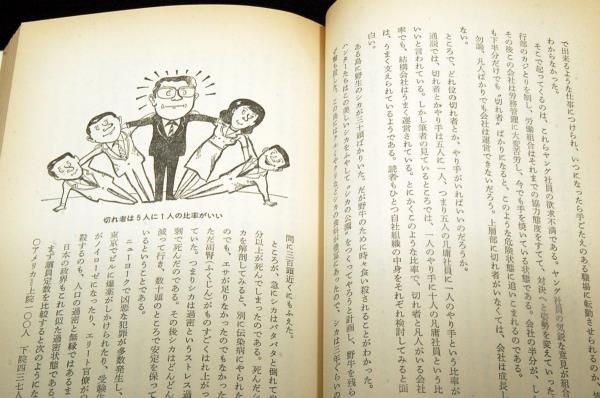 で出来るような仕事につけられ、いつになったら手ごたえのある職場に転勤させられるのか、
わからなかった。
そこで起ってくるのは、これらヤング社員の欲求不満である。ヤング社員の気鋭な意見が組合
行部のカジとりを制し、労働組合はそれまでの協力態度をすてて、対決へと姿勢を変えていった。
その後この会社は労務管理に大変苦労し、今でも手を焼いている状態である。会社の半分が、し
も下半分だけでも“切れ者”ばかりになると、このような危険状態に追いこまれるのである。
勿論、凡人ばかりでも会社は運営できないだろう。上層部に切れ者がいなくては、会社は成長し
ない。
ところで、どれ位の切れ者とか、やり手がいればいいのだろうか。
通説では、切れ者とかやり手は五人に一人、つまり五人の凡庸社員に一人のやり手という比率が
いいと言われている。しかし筆者の見ているところでは、一人のやり手に十人の凡庸社員という比
率でも、結構会社はうまく運営されている。とにかくこのような比率で、切れ者と凡人がいる会社
は、うまく支えられているようである。読者もひとつ自社組織の中身をそれぞれ検討してみると面
白い。
ある島に野生のシカが三十頭ばかりいた。だが野牛のために時々食い殺されることがわかった。
ハンターたちはこの美しいシカをふやして“シカの公園”をつくってやろうと計画し、野牛を残ら
切れ者は5人に1人の比率がいい
間に三百頭近くにもふえた。
ところが、急にシカはバタバタと倒れて半
分以上が死んでしまったのである。死んだシ
カを解剖してみると、別に伝染病にやられた
のでも、エサが足りなかったのでもなかった
ただ副腎（ふくじん）がものすごくはれ上がっ
ていた。つまりシカは過密というストレス過
剰で死んだのである。その後シカはどんどん
減って行き、数十頭のところで安定を保って
いるということである。
ニューヨークで凶悪な犯罪が多数発生し、
東京でもビルに爆薬がしかけられたり、受験生
がノイローゼになったり、エリート官僚が
殺するのも、人口の過密と無縁ではあるま
日本の政界もこれに似た過密状態である。
まず議員定数を比較すると次のようにな
○アメリカ—上院一〇〇人　下院四三七人